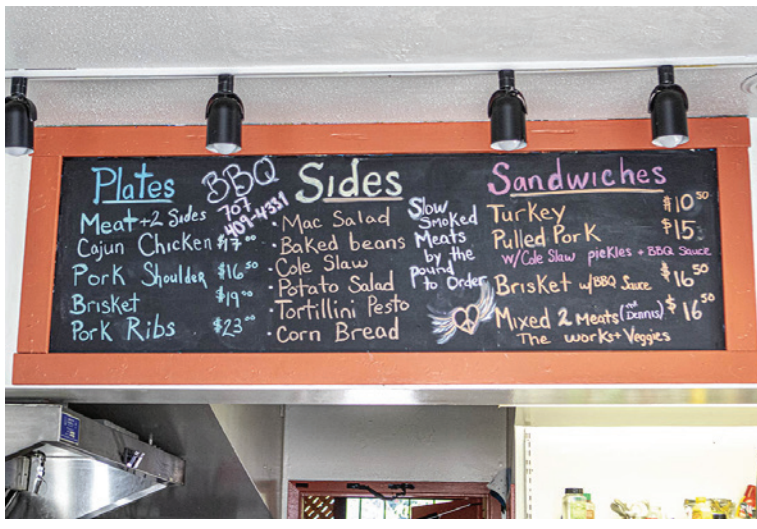 Plates
Meat + 2 Sides
Cajun Chicken $17.00
Pork Shoulder $16.50
Brisket $19.00
Pork Ribs $23.00
BBQ
707
409-4331
Sides
· Mac Salad
· Baked beans
· Cole Slaw
· Potato Salad
· Tortillini Pesto
· Corn Bread
Slow
Smoked
Meats
by the
pound
to Order
Sandwiches
Turkey $10.50
Pulled Pork $15
w/Cole Slaw pickles + BBQ Sauce
Brisket w/BBQ Sauce $16.50
Mixed 2 Meats (not Dennis) $16.50
The works + Veggies